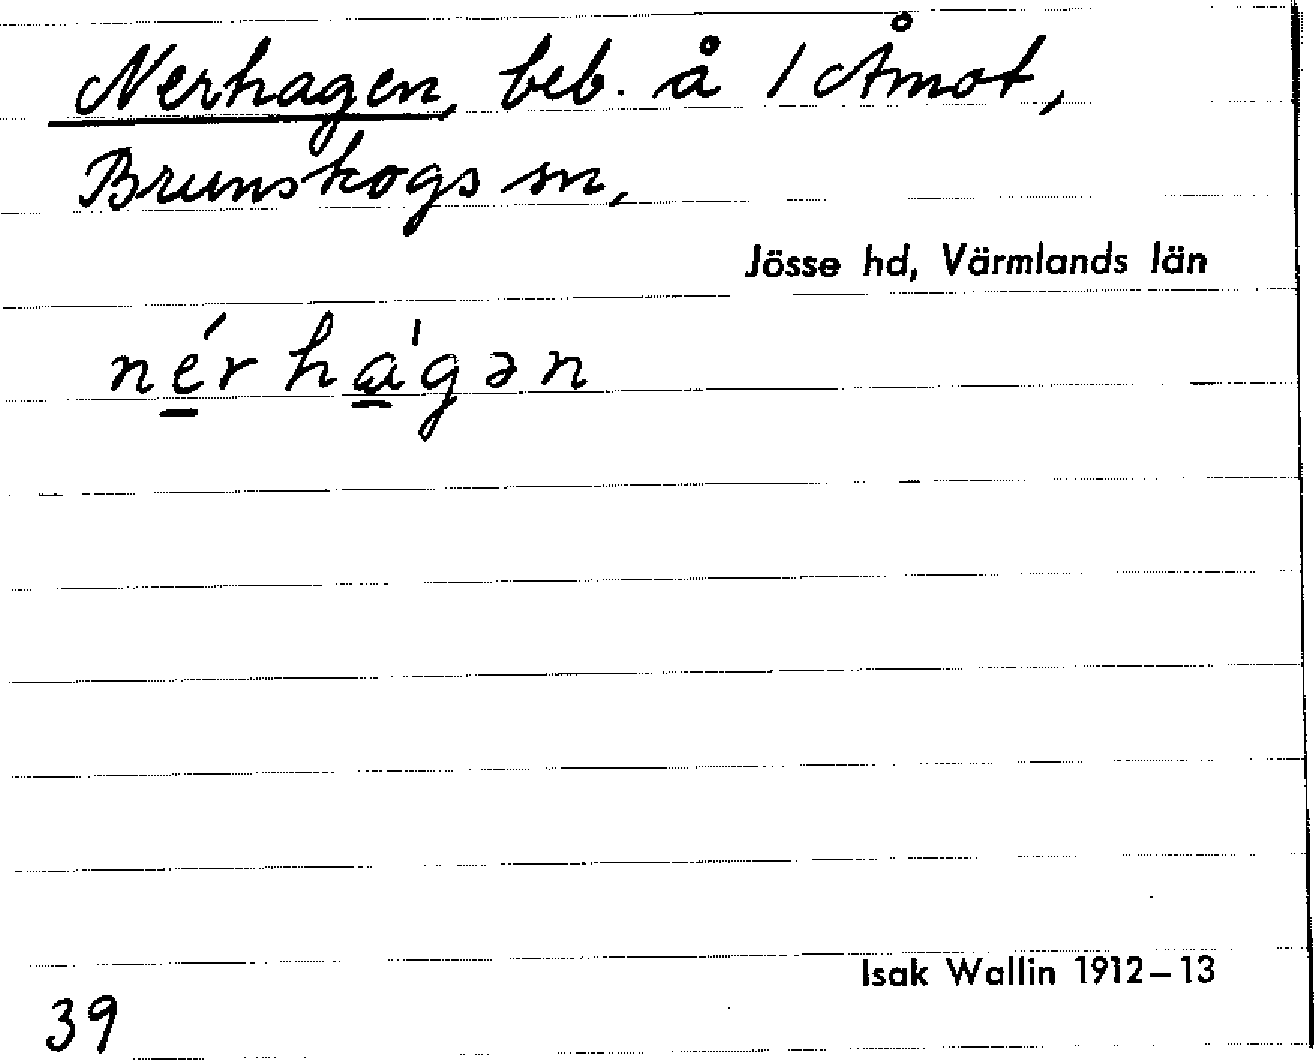 Nerhagen, beb. å 1 Åmot,
Brunskogs sn,
Jösse hd, Värmlands län
nérha̍gən
Isak Wallin 1912–13
39